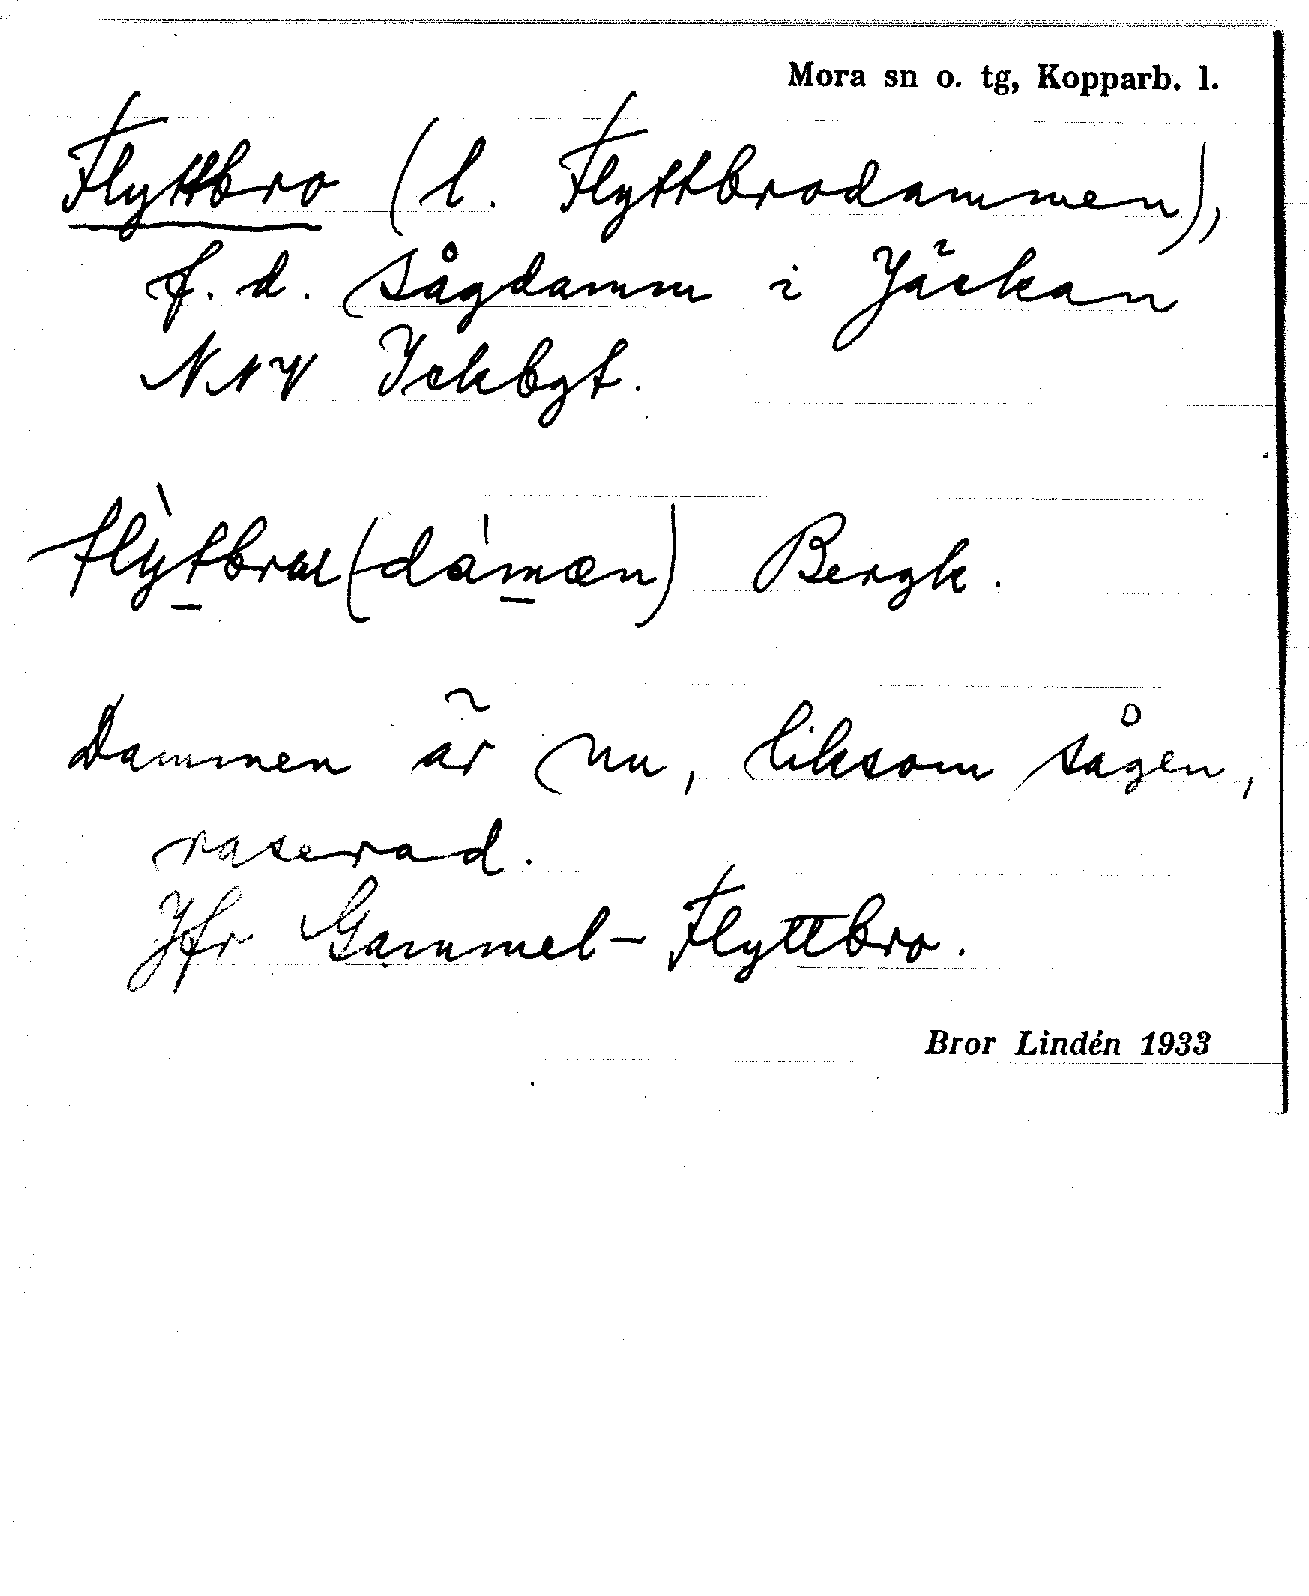 Mora sn o. tg, Kopparb. l.
Flyttbro (l. Flyttbrodammen),
f. d. sågdamm i Jäckan
NNV Ickbgt.
Bergk.
Dammen är nu, liksom sågen,
raserad.
Jfr Gammel-Flyttbro.
Bror Lindén 1933